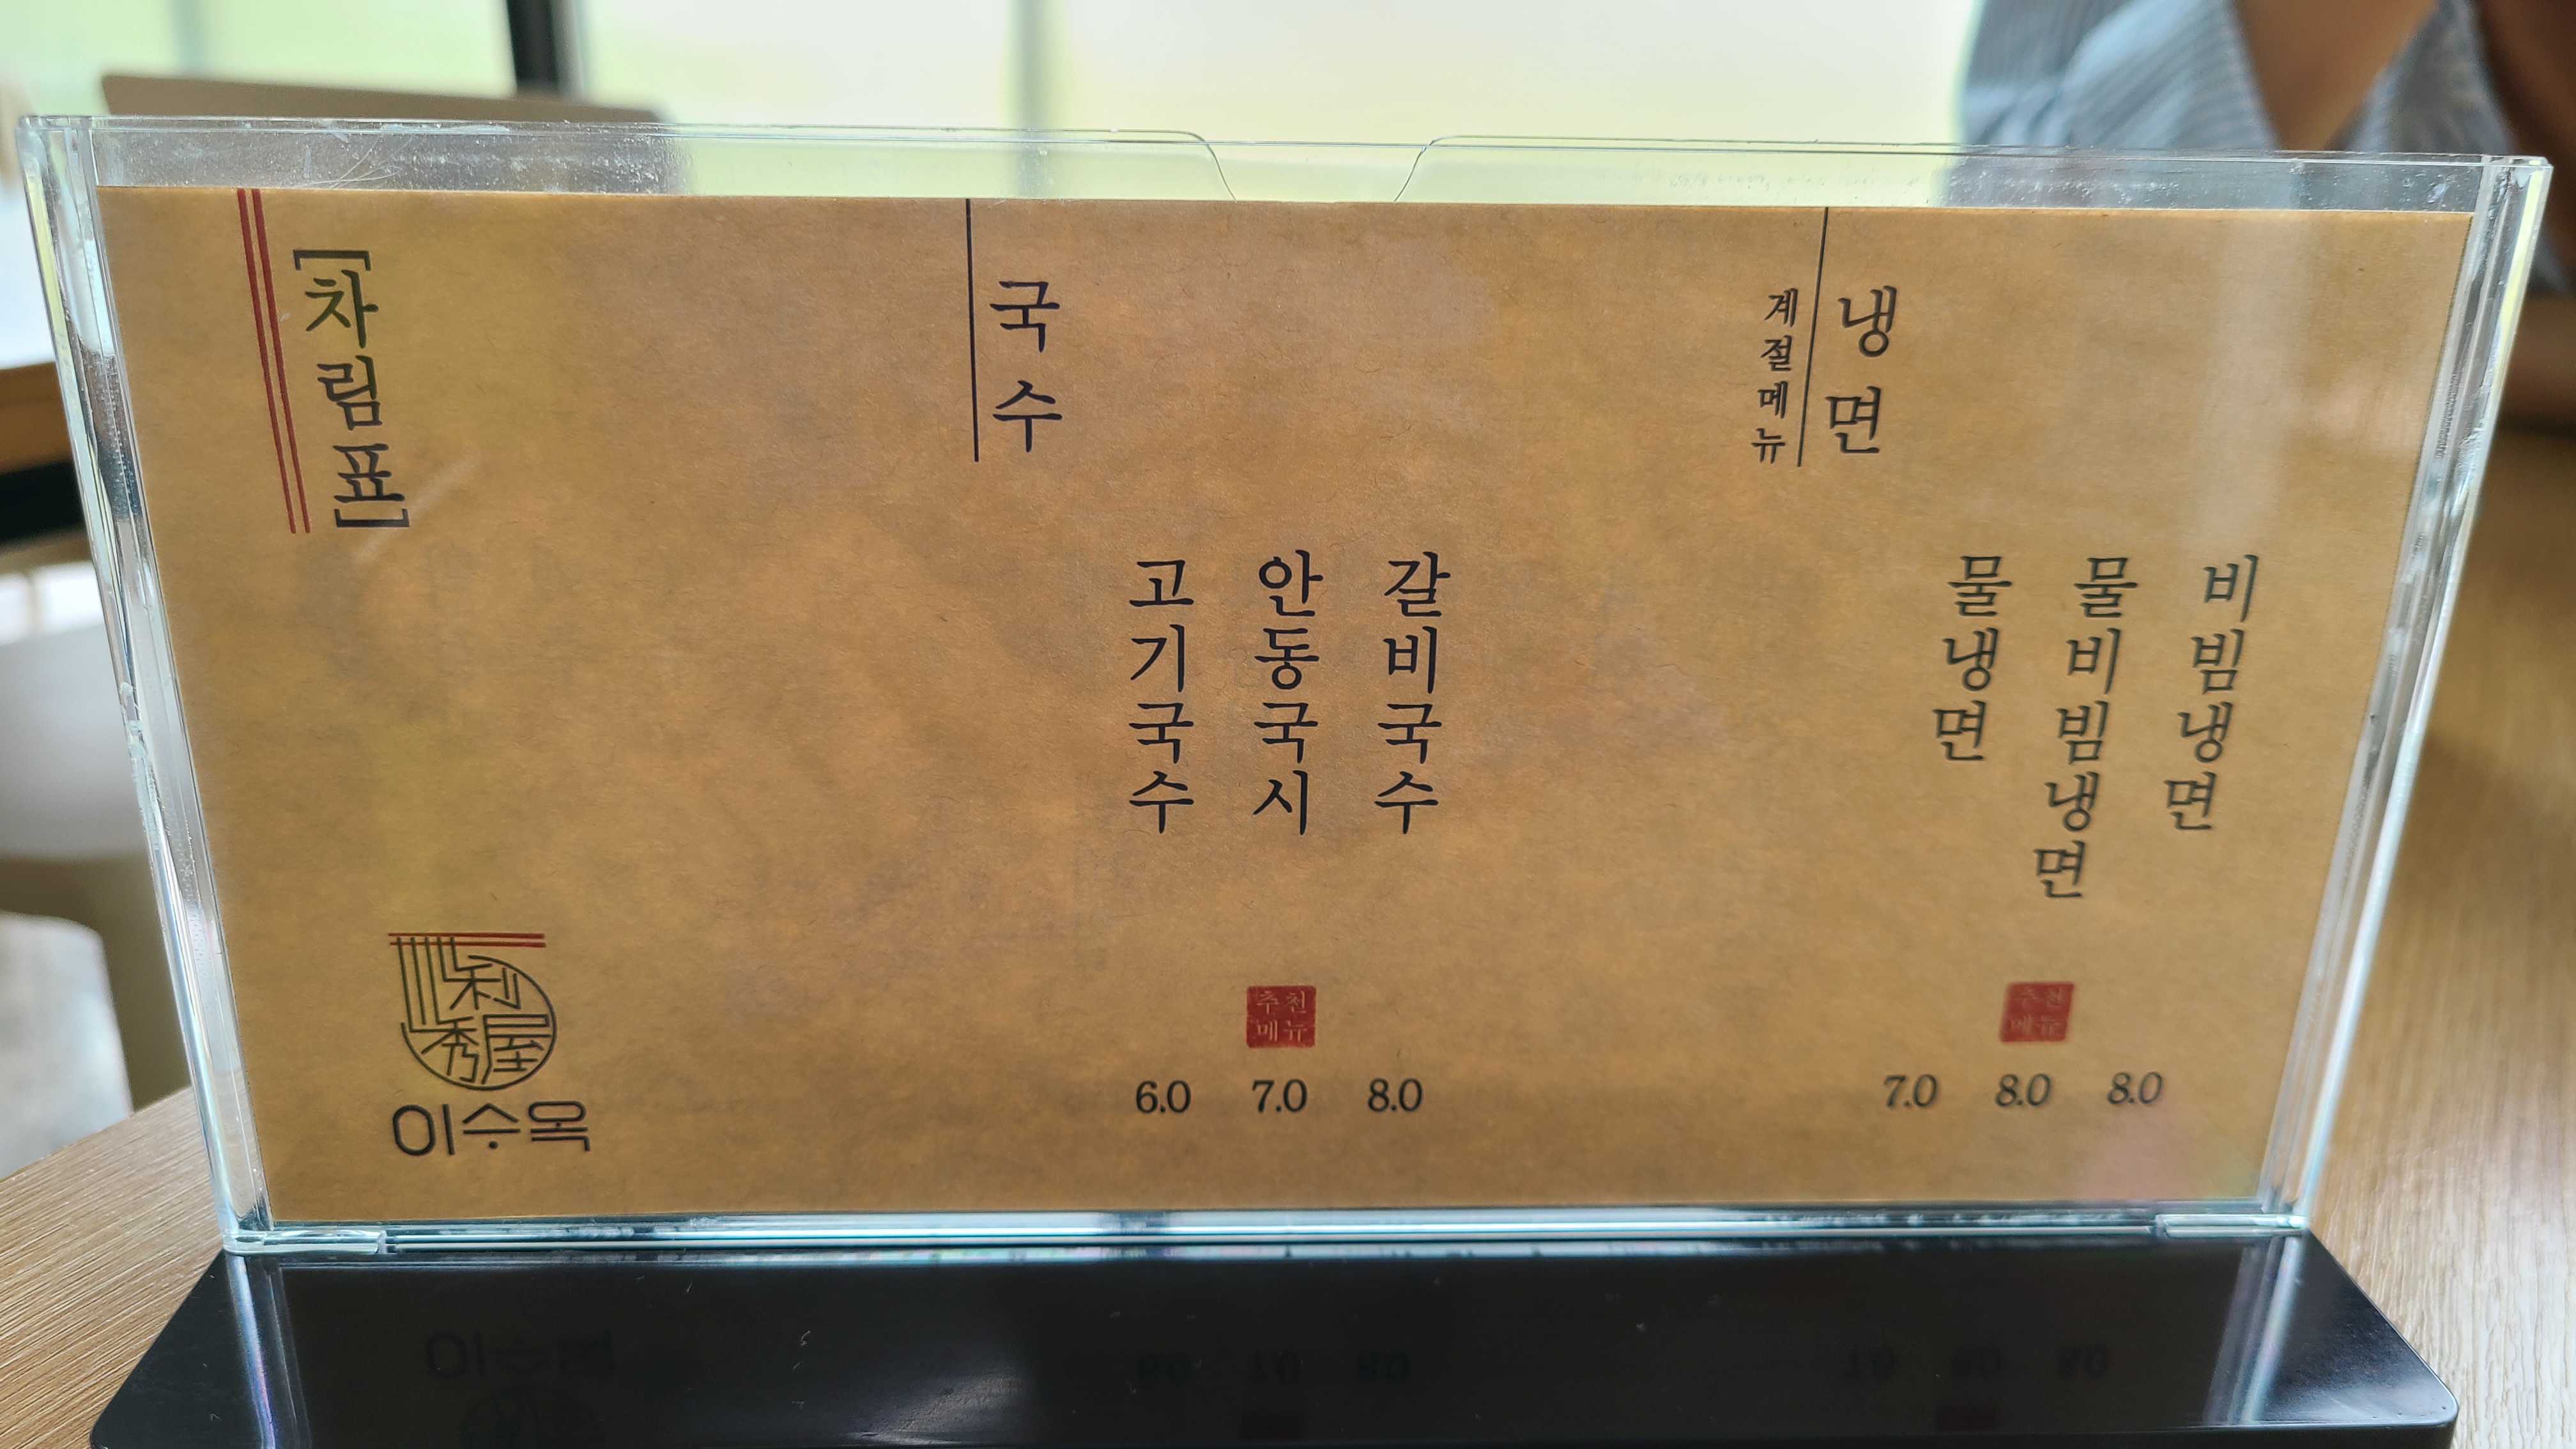 [차림표]
국수
고기국수
안동국시
갈비국수
추천
메뉴
6.0 7.0 8.0
계절메뉴
냉면
물냉면
물비빔냉면
비빔냉면
추천
메뉴
7.0 8.0 8.0
利
秀屋
이수옥